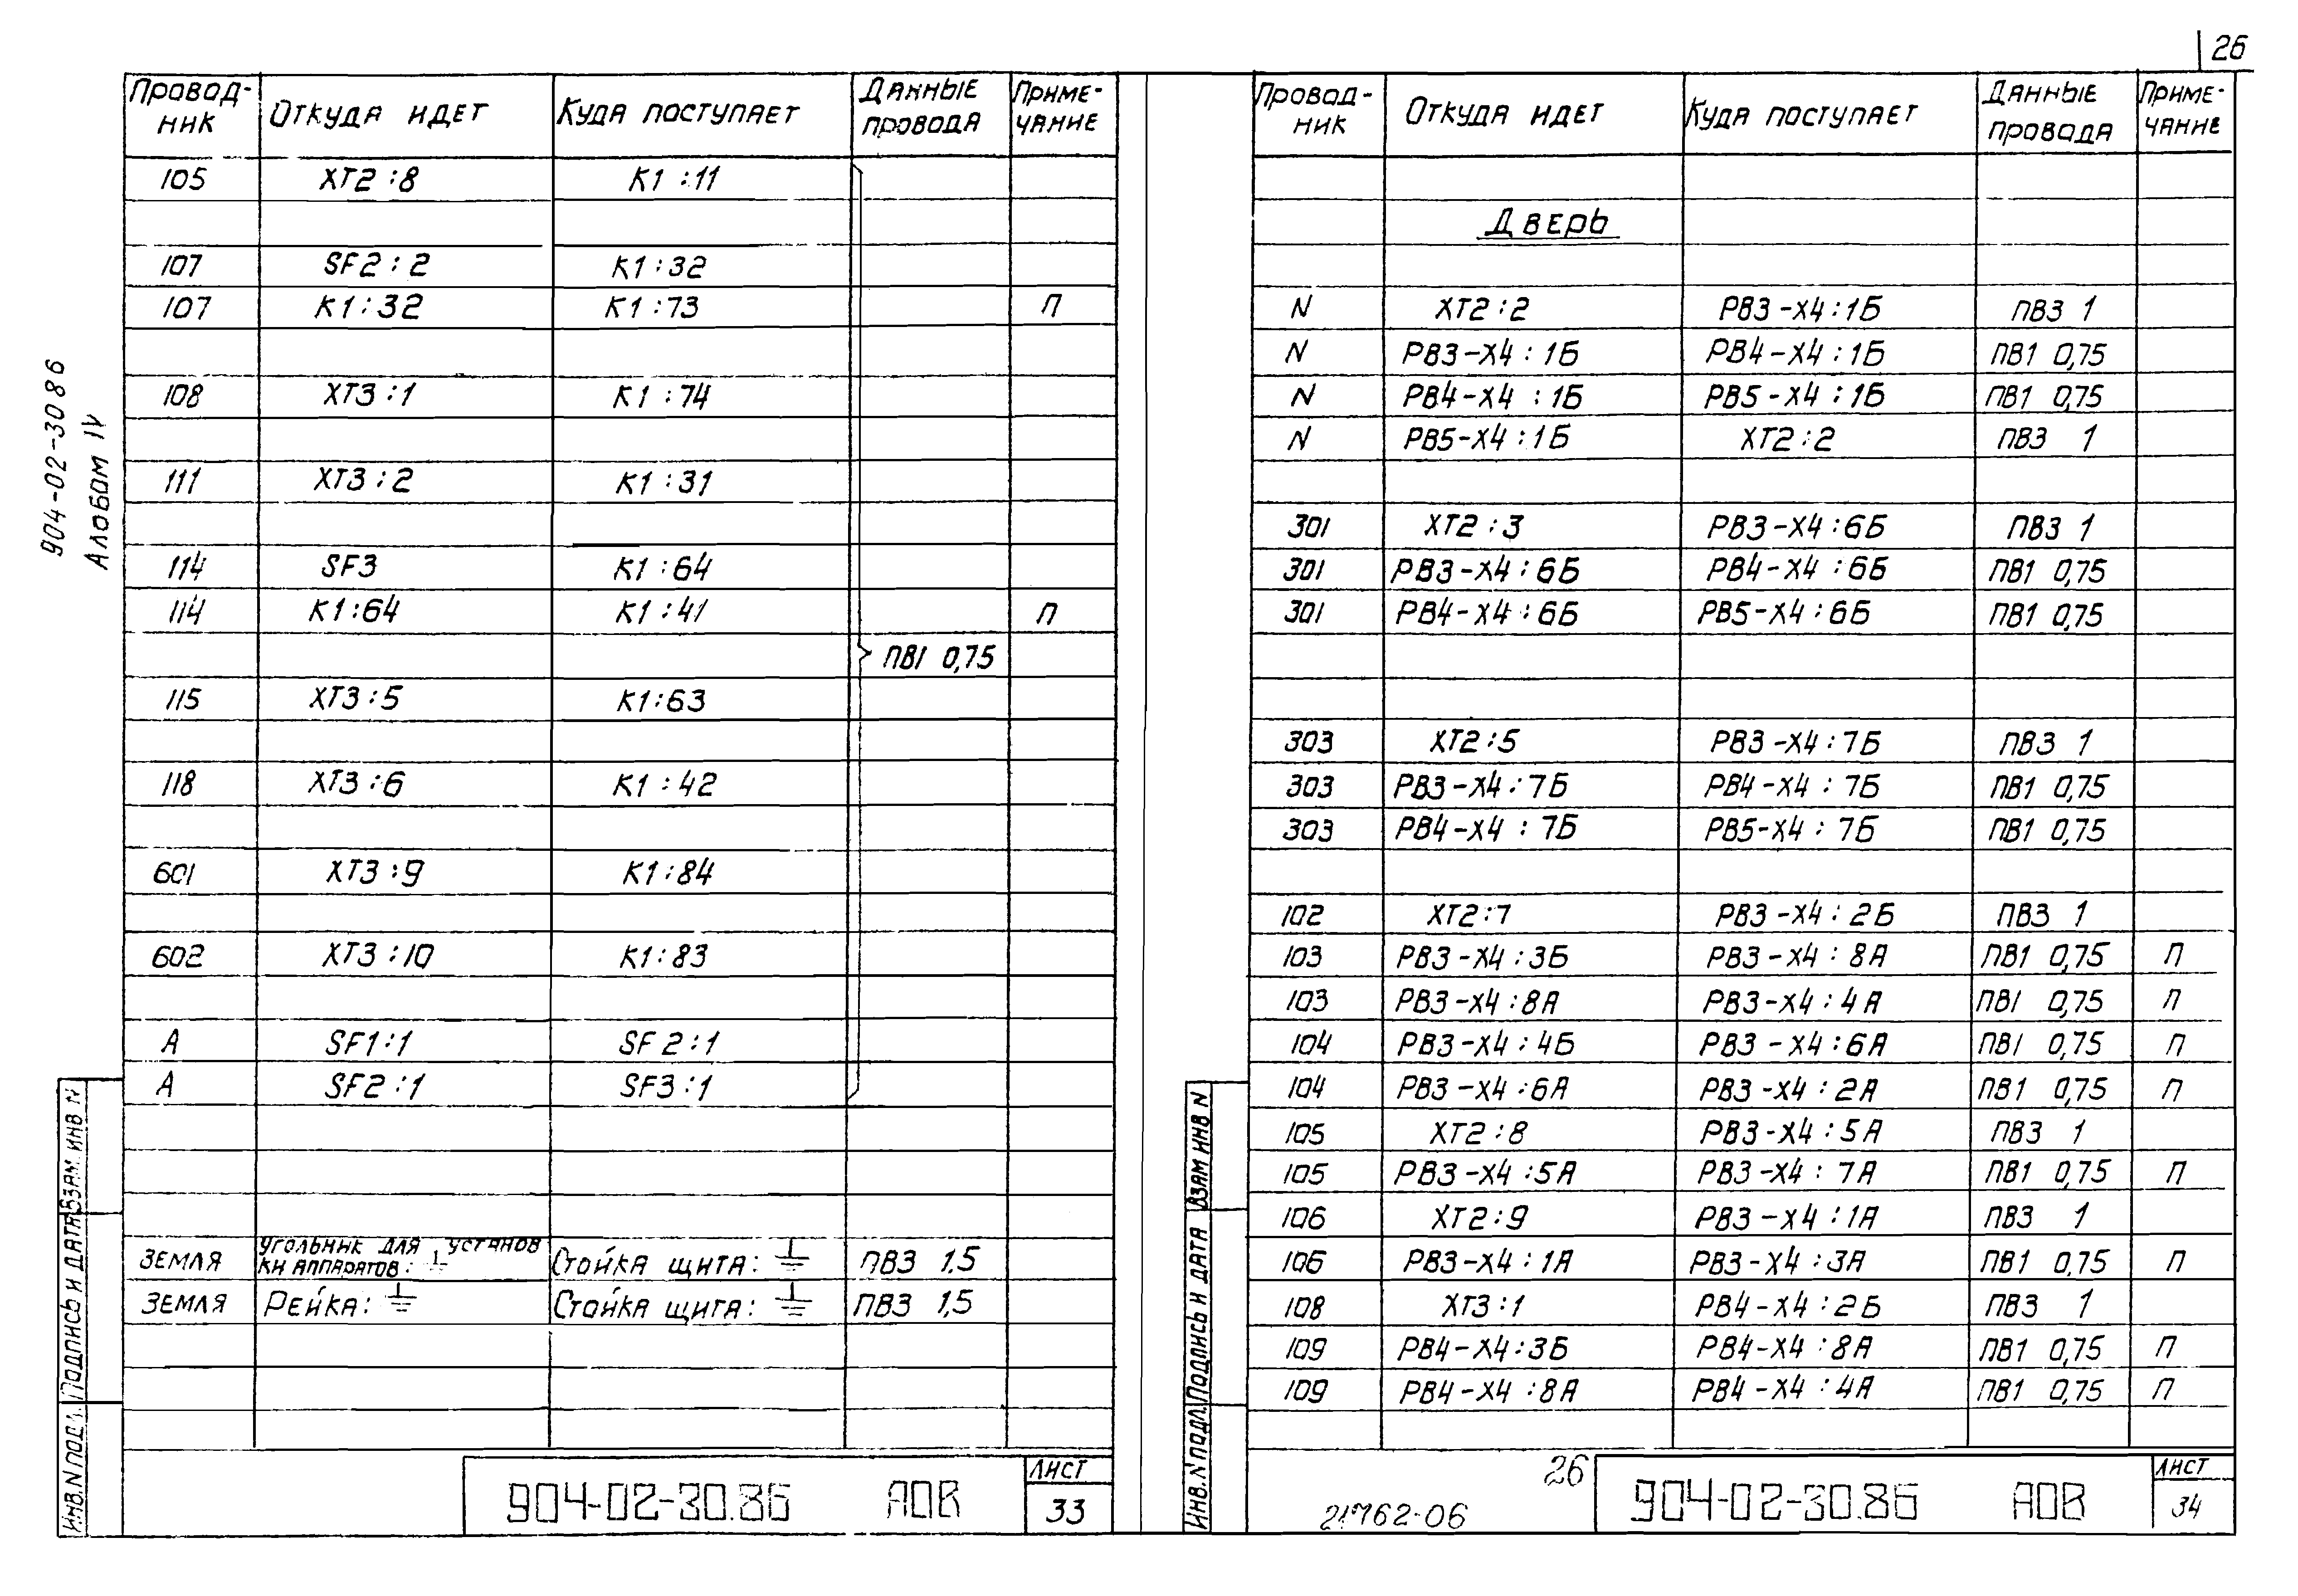 26
904-02-30.86
Альбом IV
Провод-ник Откуда идет Куда поступает Данные провода Приме-чание
105 XT2:8 K1:11
107 SF2:2 K1:32
107 K1:32 K1:73 П
108 XT3:1 K1:74
111 XT3:2 K1:31
114 SF3 K1:64
114 K1:64 K1:41 П
ПВ1 0,75
115 XT3:5 K1:63
118 XT3:6 K1:42
601 XT3:9 K1:84
602 XT3:10 K1:83
A SF1:1 SF2:1
A SF2:1 SF3:1
Земля Угольник для установ
ки аппаратов: ⏚ Стойка щита: ⏚ ПВ3 1.5
Земля Рейка: ⏚ Стойка щита: ⏚ ПВ3 1,5
904-02-30.86 АОВ Лист 33
Инв.N подл. Подпись и дата Взам. инв N
Провод-ник Откуда идет Куда поступает Данные провода Приме-чание
Дверь
N XT2:2 PB3-X4:1Б ПВ3 1
N PB3-X4:1Б PB4-X4:1Б ПВ1 0,75
N PB4-X4:1Б PB5-X4:1Б ПВ1 0,75
N PB5-X4:1Б XT2:2 ПВ3 1
301 XT2:3 PB3-X4:6Б ПВ3 1
301 PB3-X4:6Б PB4-X4:6Б ПВ1 0,75
301 PB4-X4:6Б PB5-X4:6Б ПВ1 0,75
303 XT2:5 PB3-X4:7Б ПВ3 1
303 PB3-X4:7Б PB4-X4:7Б ПВ1 0,75
303 PB4-X4:7Б PB5-X4:7Б ПВ1 0,75
102 XT2:7 PB3-X4:2Б ПВ3 1
103 PB3-X4:3Б PB3-X4:8А ПВ1 0,75 П
103 PB3-X4:8А PB3-X4:4А ПВ1 0,75 П
104 PB3-X4:4Б PB3-X4:6А ПВ1 0,75 П
104 PB3-X4:6А PB3-X4:2А ПВ1 0,75 П
105 XT2:8 PB3-X4:5А ПВ3 1
105 PB3-X4:5А PB3-X4:7А ПВ1 0,75 П
106 XT2:9 PB3-X4:1А ПВ3 1
106 PB3-X4:1А PB3-X4:3А ПВ1 0,75 П
108 XT3:1 PB4-X4:2Б ПВ3 1
109 PB4-X4:3Б PB4-X4:8А ПВ1 0,75 П
109 PB4-X4:8А PB4-X4:4А ПВ1 0,75 П
26
21762-06
904-02-30.86 АОВ Лист 34
Инв.N подл. Подпись и дата Взам инв N